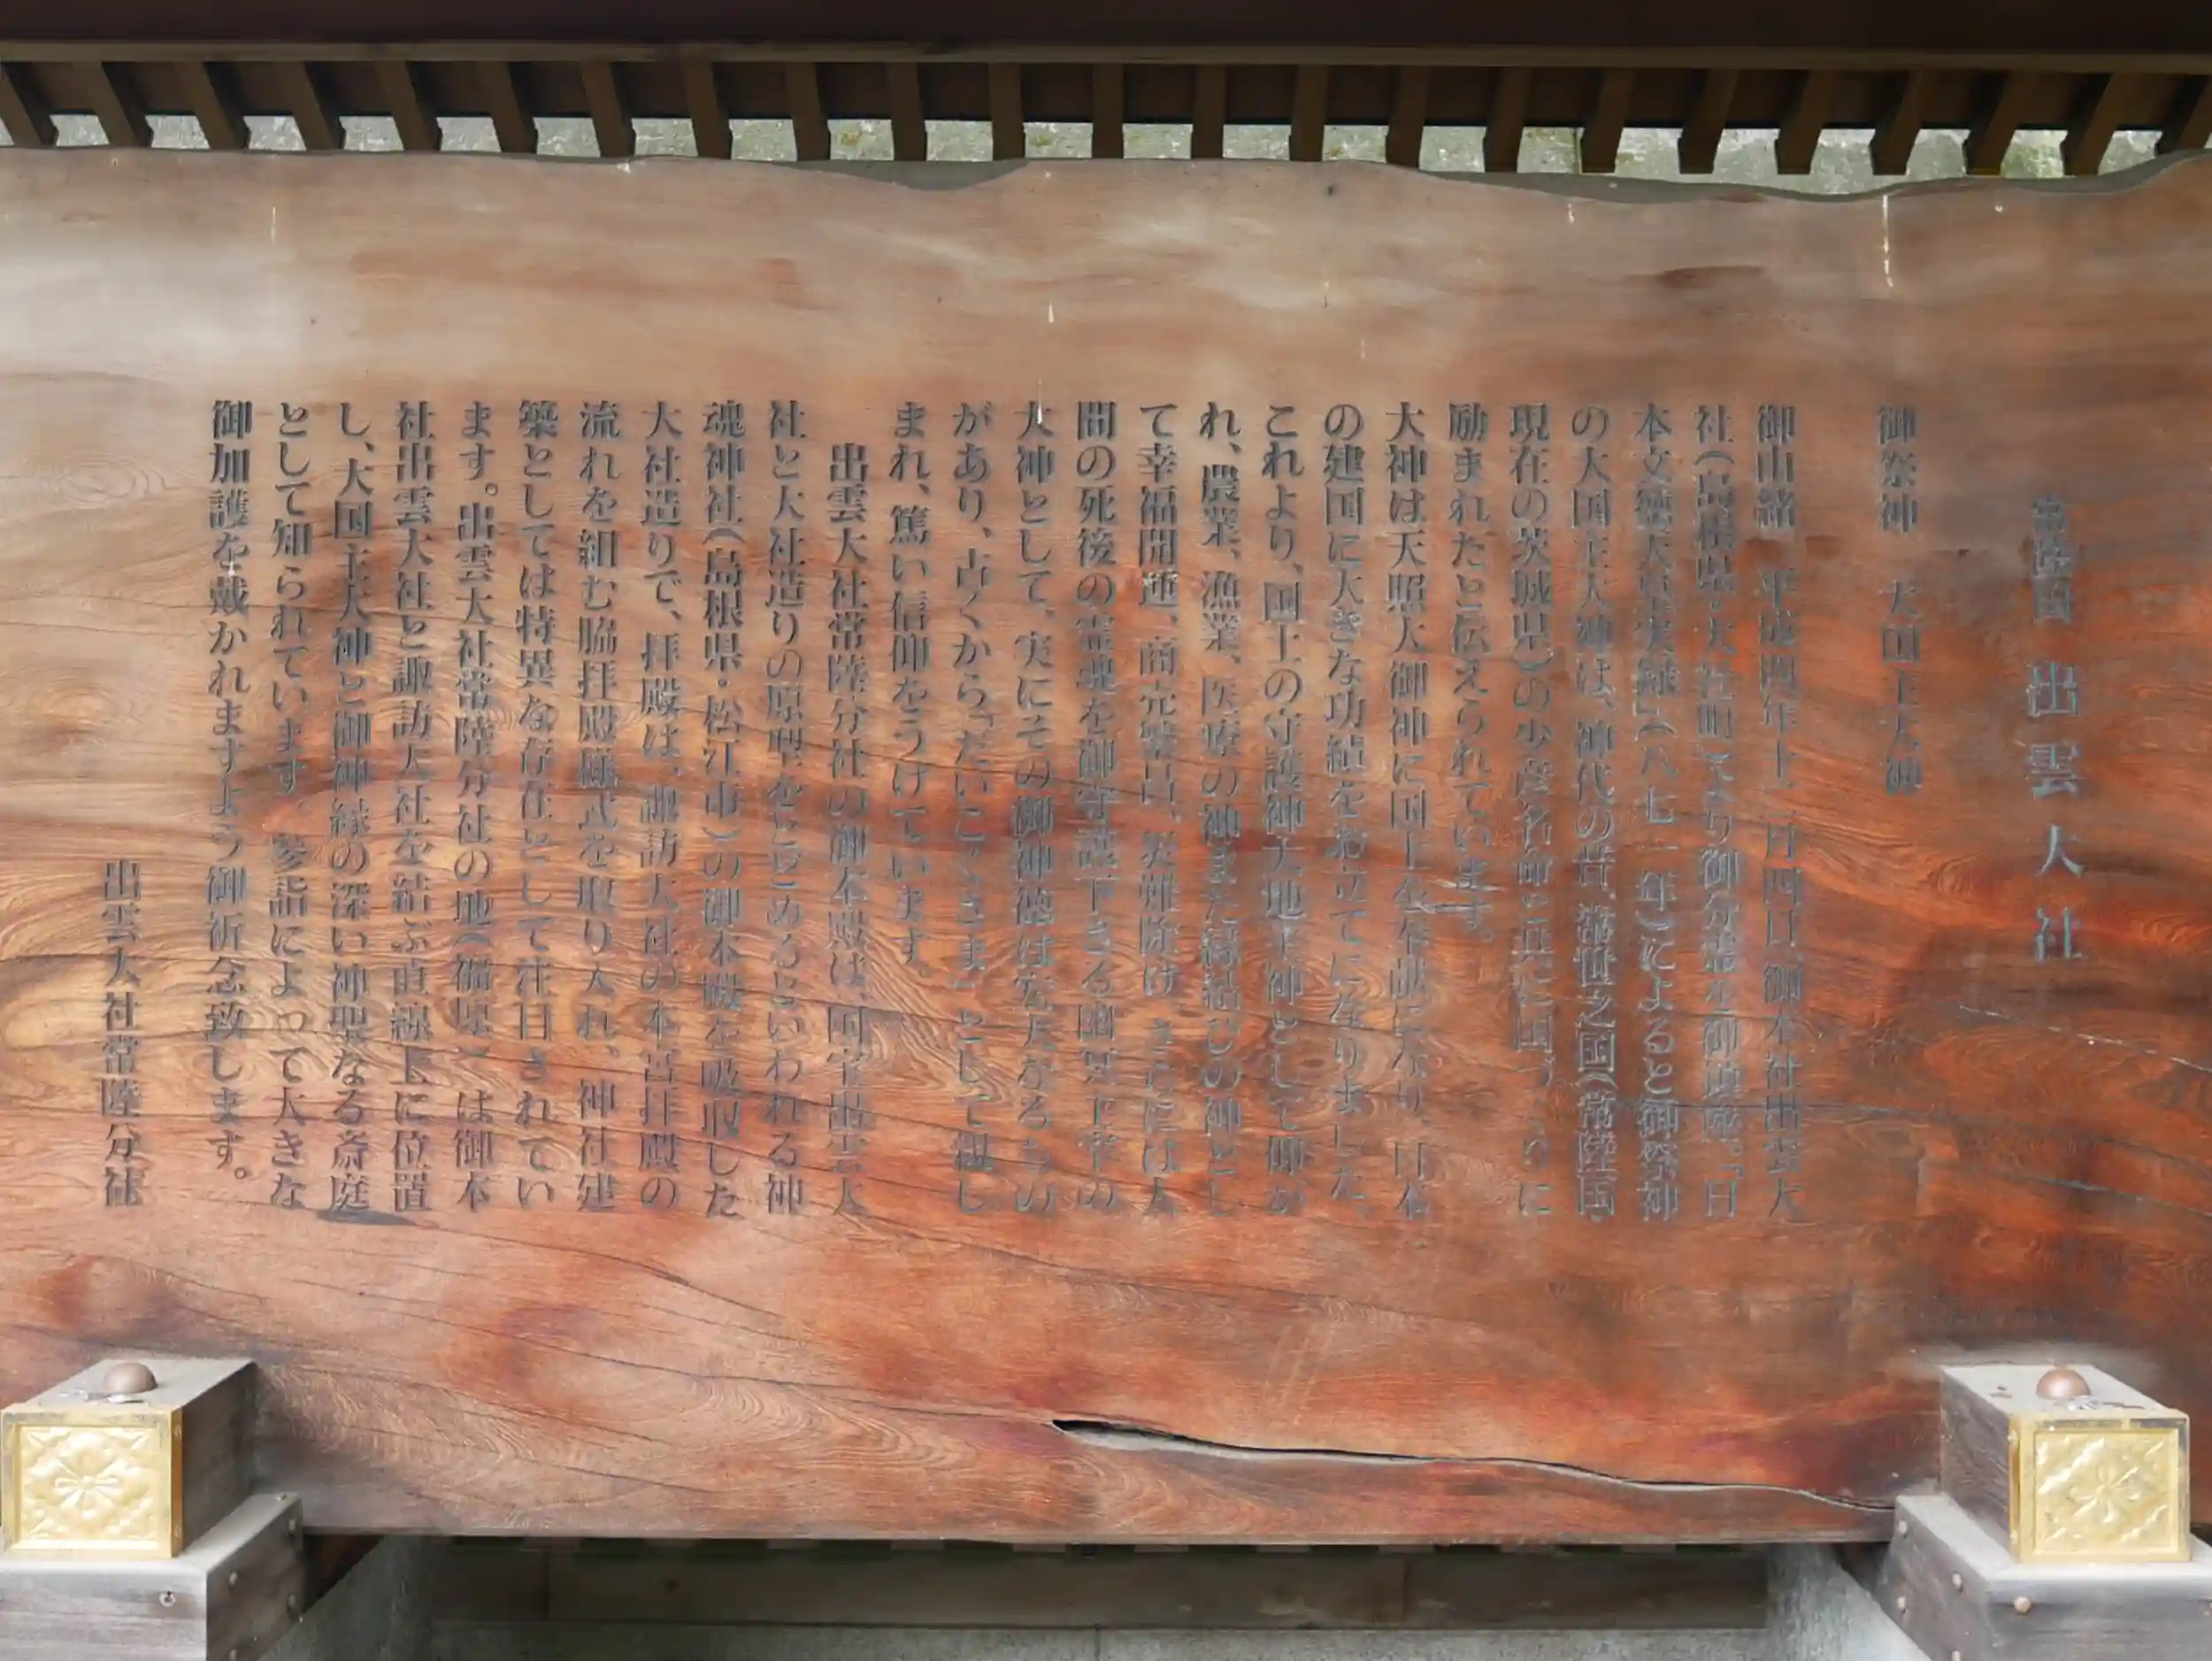 常陸国 出雲大社
御祭神 大国主大神
御由緒 平成四年十二月四日、御本社出雲大
社(島根県・大社町)より御分霊を御鎮座。「日
本文徳天皇実録」(八七一年)によると御祭神
の大国主大神は、神代の昔、常世之国(常陸国・
現在の茨城県)の少彦名命と共に国づくりに
励まれたと伝えられています。
大神は天照大御神に国土を奉献になり、日本
の建国に大きな功績をお立てになりました。
これより、国土の守護神大地主神として仰が
れ、農業、漁業、医療の神また縁結びの神とし
て幸福開運、商売繁昌、災難除け、さらには人
間の死後の霊魂を御守護下さる幽冥主宰の
大神として、実にその御神徳は宏大なるもの
があり、古くから「だいこくさま」として親し
まれ、篤い信仰をうけています。
出雲大社常陸分社の御本殿は、国宝出雲大
社と大社造りの原型をとどめるといわれる神
魂神社(島根県・松江市)の御本殿を吸収した
大社造りで、拝殿は、諏訪大社の本宮拝殿の
流れを組む脇拝殿様式を取り入れ、神社建
築としては特異な存在として注目されてい
ます。出雲大社常陸分社の地(福原)は御本
社出雲大社と諏訪大社を結ぶ直線上に位置
し、大国主大神と御神縁の深い神聖なる斎庭
として知られています。参詣によって大きな
御加護を戴かれますよう御祈念致します。
出雲大社常陸分社